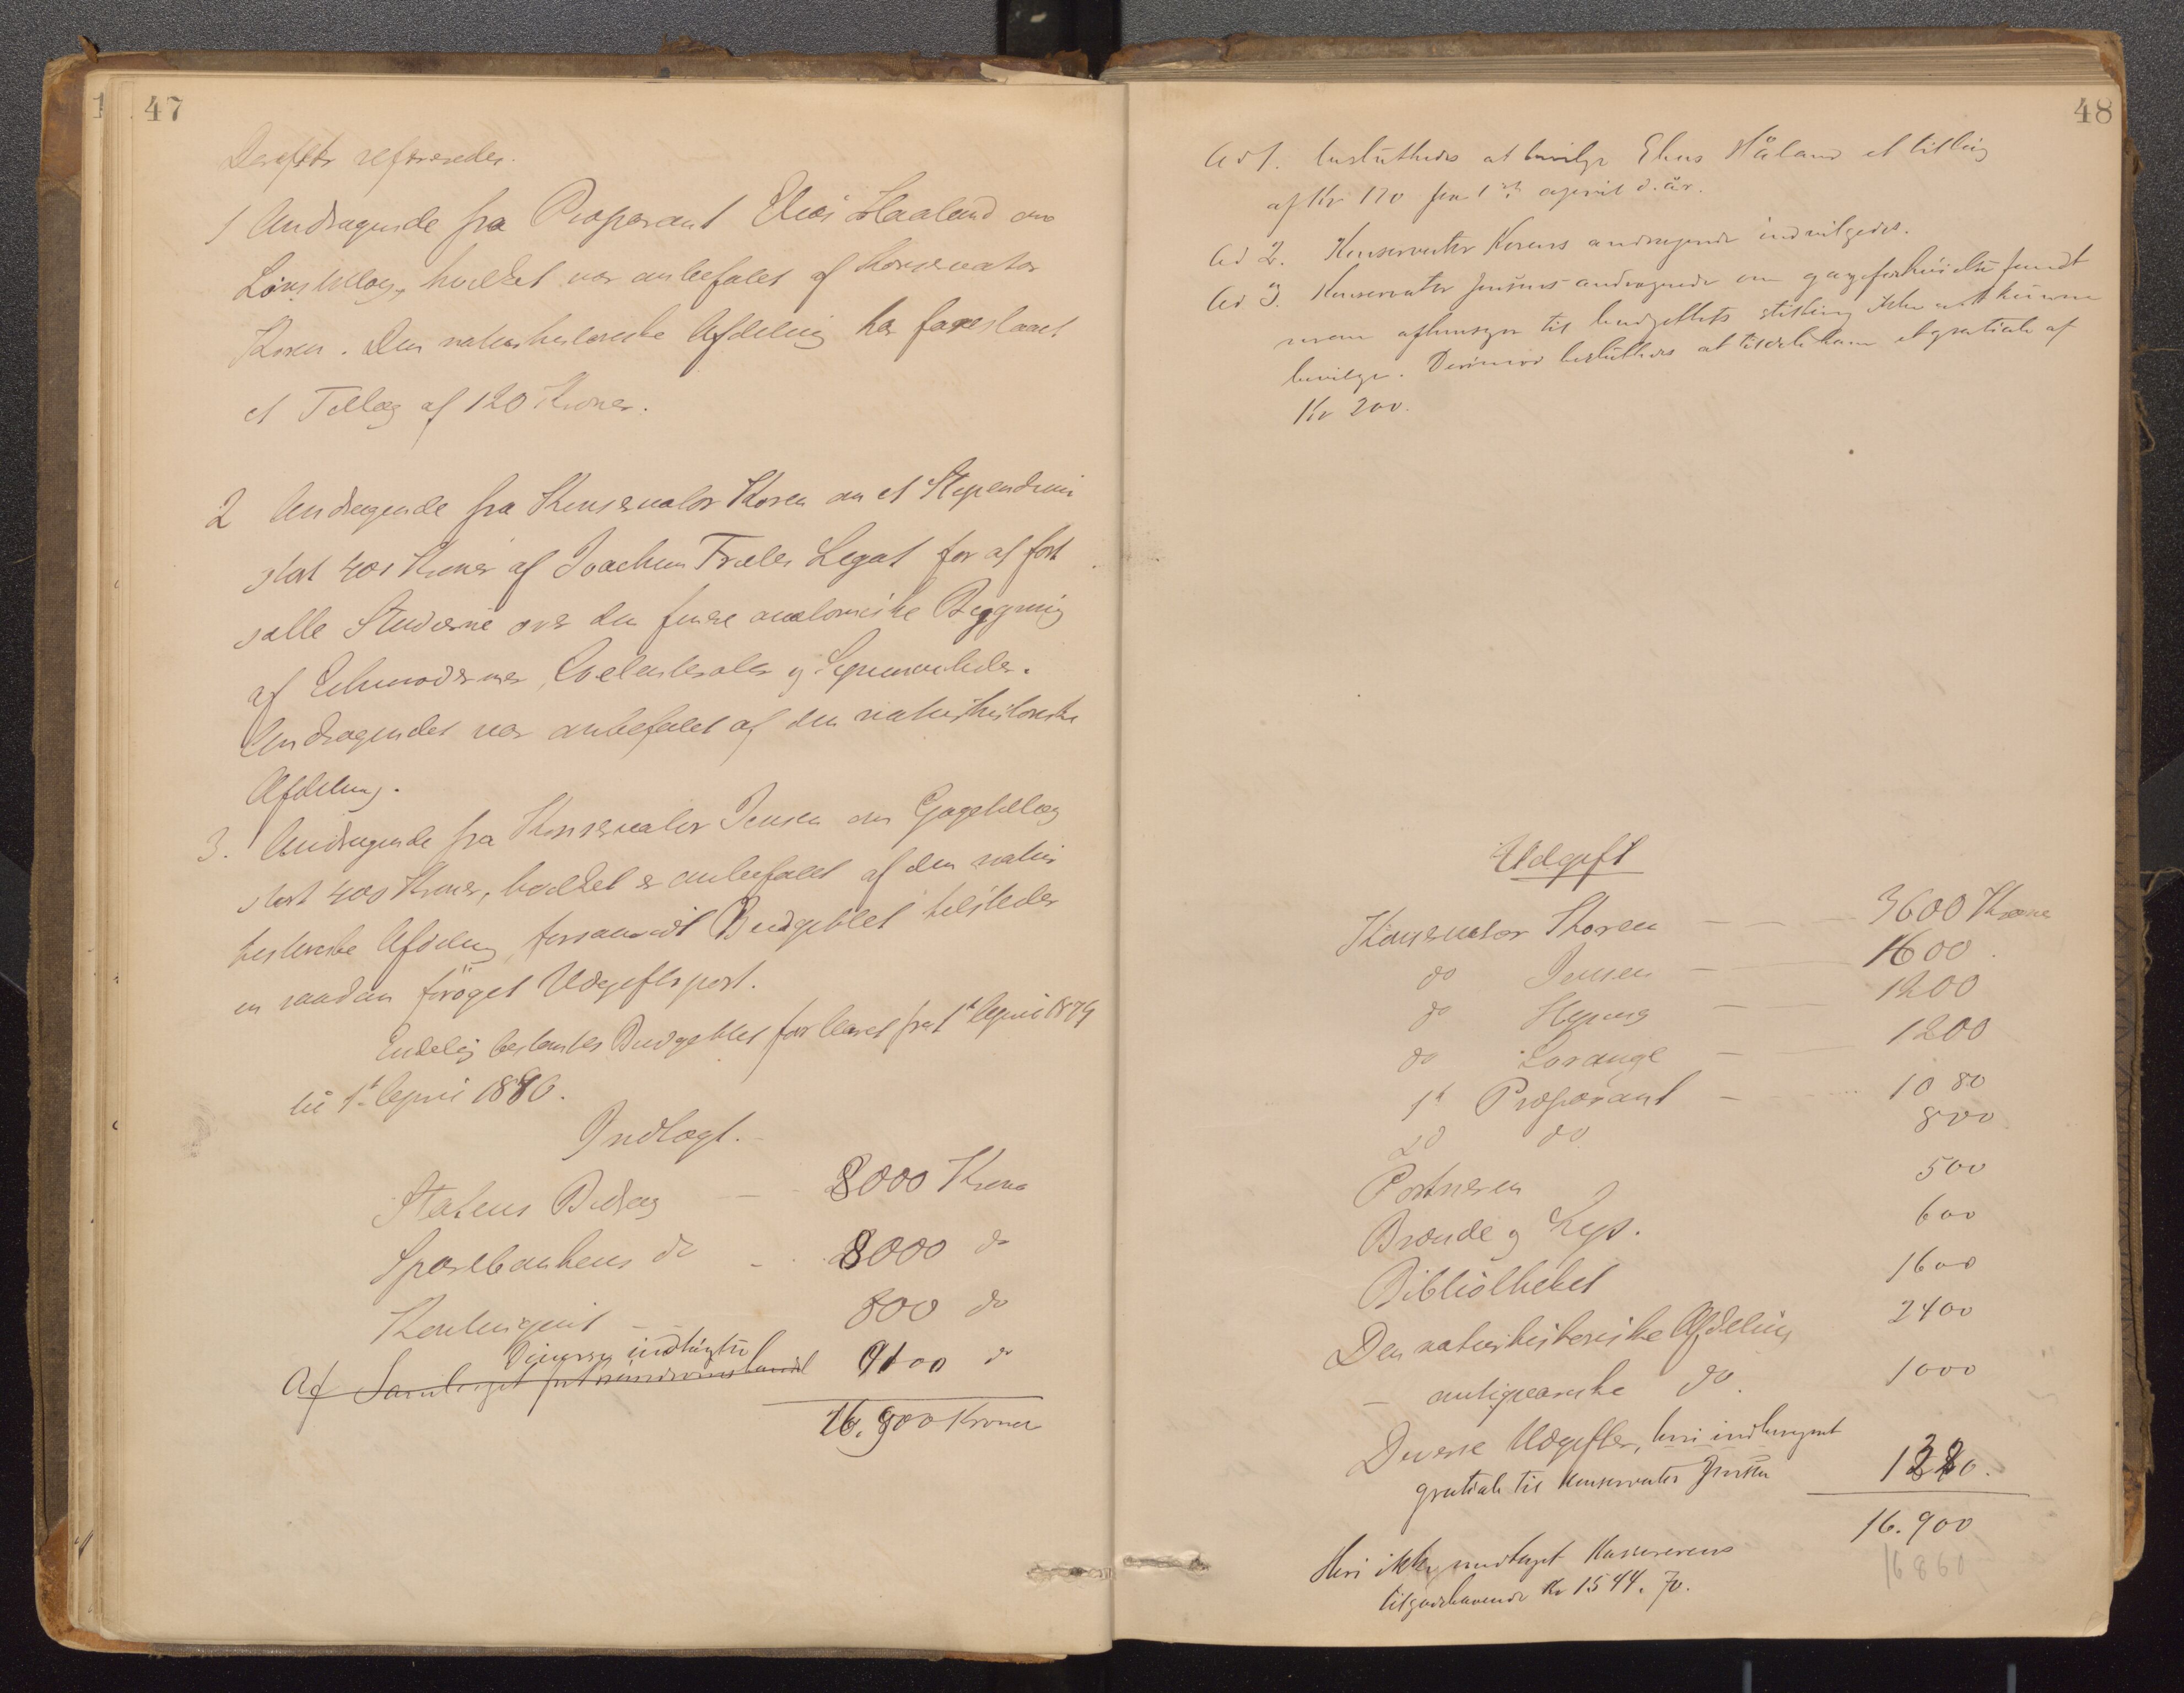 47
Derefter refereredes.
1 Andragende fra Præparant Elias Haaland om
Lønstillæg, hvilket var anbefalet af Konservator
Koren. Den naturhistoriske Afdeling har foreslaaet
et Tillæg af 120 Kroner.
2 Andragende fra Konservator Koren om et Stipendium
stort 400 Kroner af Joachim Frieles Legat for at fort
sætte Studierne over den finere anatomiske Bygning
af Echinodermer, Coelenterater og Gephyreer
Andragendet var anbefalet af den naturhistoriske
Afdeling.
3. Andragende fra Konservator Jensen om Gagetillæg
stort 400 Kroner, hvilket er anbefalet af den natur
historiske Afdeling, forsaavidt Budgettet tilsteder
en saadan forøget Udgiftspost.
Endelig bestemtes Budgettet for Aaret fra 1ste April 1879
til 1ste April 1880.
Indtægt.
Statens Bidrag — 8000 Kroner
Sparebankens do — 8000 do
Kontingent — 800 do
Diverse indtægter
Af 100 do
16.900 Kroner
48
Ad 1. Besluttedes at bevilge Elias Håland et tillæg
af Kr 120 fra 1ste april d. år.
Ad 2. Konservator Korens andragende indvilgedes.
Ad 3. Konservator Jensens andragende om gageforhøielse fandt
man af hensyn til budgettets stilling ikke at kunne
bevilge. Derimod besluttedes at tildele ham et gratiale af
Kr 200.
Udgift
Konservator Koren — — 3600 Kroner
do Jensen — 1600
do — 1200
do Lorange — 1200
1st Præparant — 1080
2d do 800
Portneren 500
Brænde og Lys. 600
Bibliotheket 1600
Den naturhistoriske Afdeling 2400
— antiqvariske do. 1000
Diverse Udgifter, heri indberegnet
gratiale til Konservator Jensen 1320.
16.900
16860
Heri ikke medtaget Kassererens
tilgodehavende Kr 1544. 70.